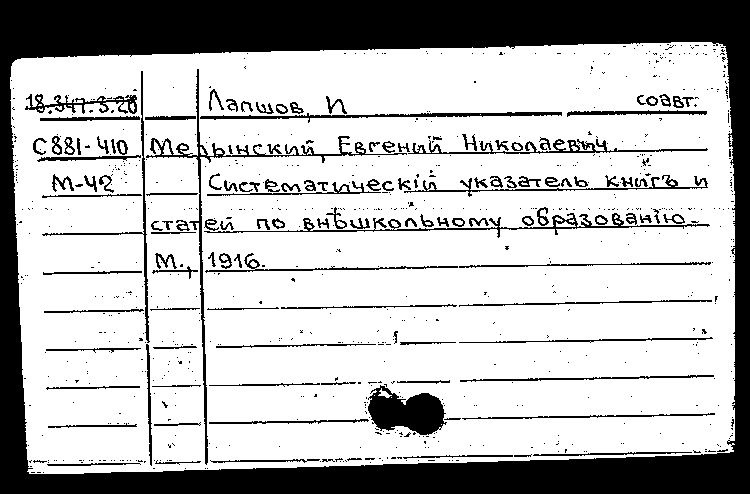 18.347.3.26 Лапшов, И соавт.
С881-410 Медынский, Евгений Николаевич.
М-42 Систематическій указатель книгъ и
статей по внѣшкольному образованію.-
М., 1916.